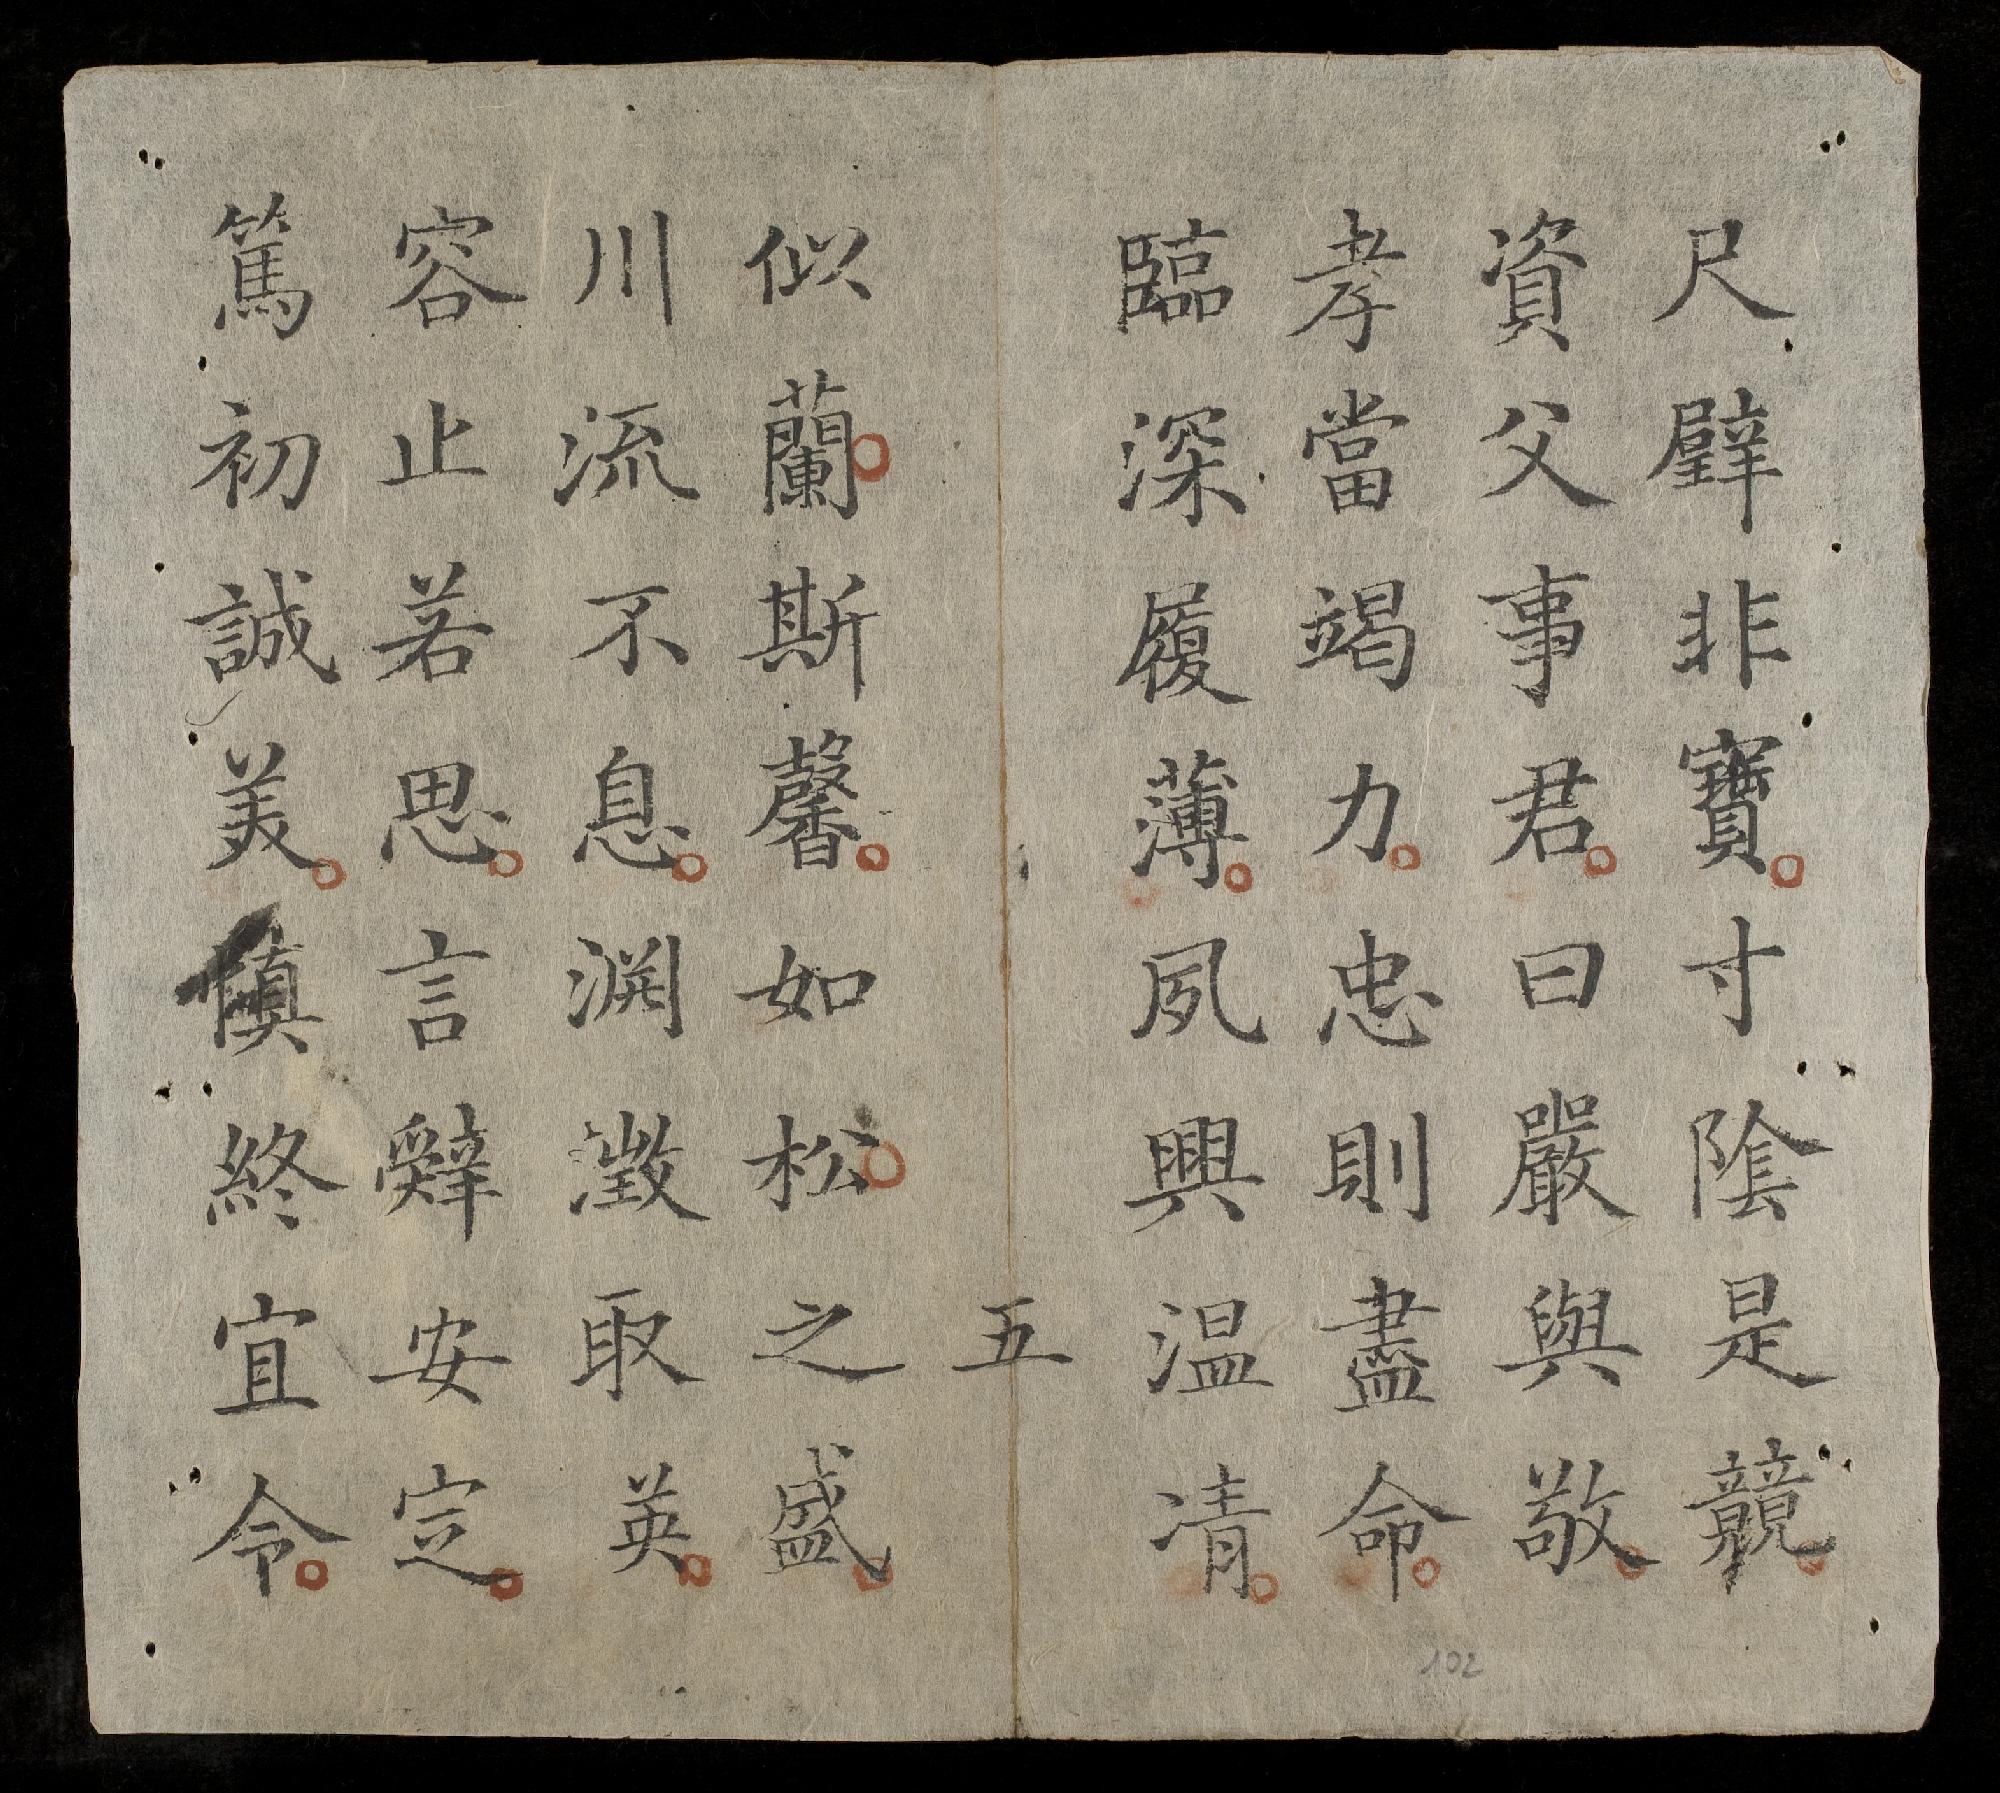 尺璧非寶寸陰是競
資父事君曰嚴與敬
孝當竭力忠則盡命
臨深履薄夙興温凊
五
似蘭斯馨如松之盛
川流不息渊澂取英
容止若思言辭安定
篤初誠美慎終宜令
102